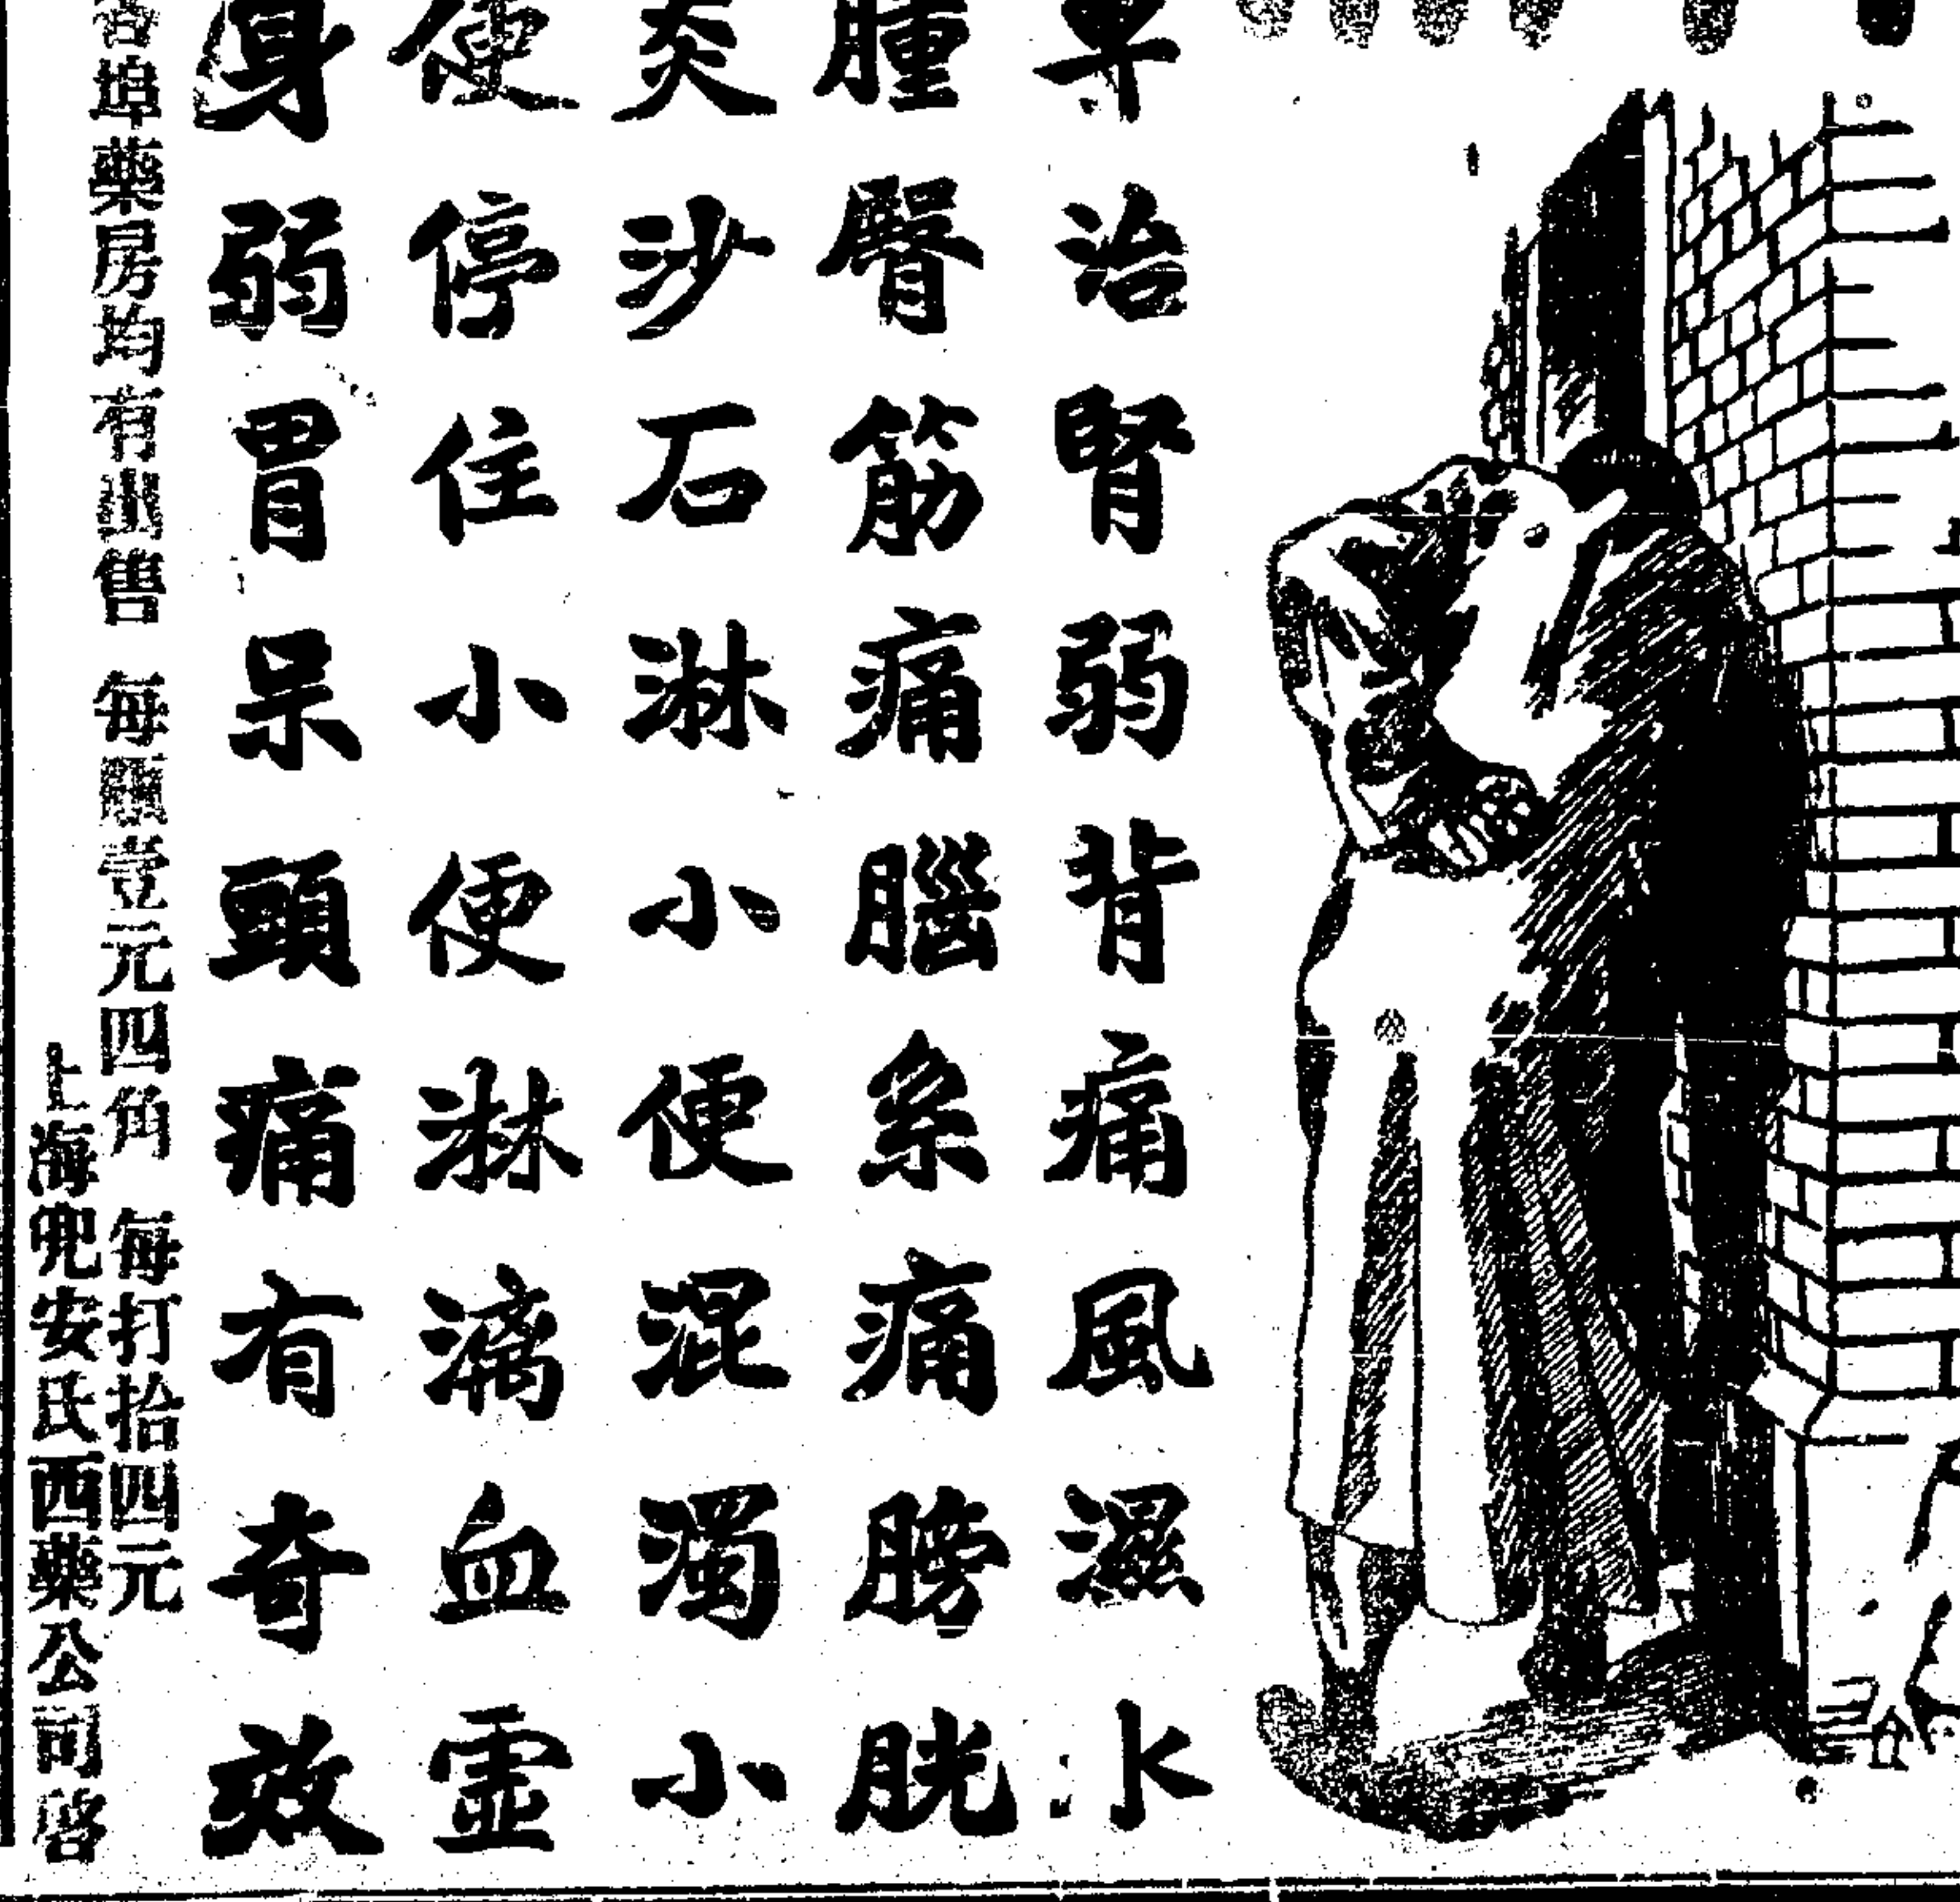 治腎弱背痛風濕水
腫臀筋痛腦系痛膀胱
炎沙石淋小便混濁小
便停住小便淋漓血虛
身弱胃呆頭痛有奇效
各埠藥房均有出售 每瓶壹元四角 每打拾四元
上海兜安氏西藥公司啓